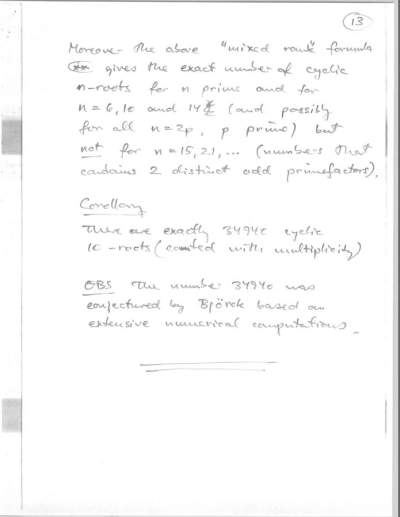 13
Moreover the above "mixed rank" formula
(**) gives the exact number of cyclic
n-roots for n prime and for
n = 6, 10 and 14 (and possibly
for all n = 2p, p prime) but
not for n = 15, 21, ... (numbers that
contains 2 distinct odd primefactors).
Corollary
There are exactly 34940 cyclic
10-roots (counted with multiplicity)
OBS The number 34940 was
conjectured by Björck based on
extensive numerical computations.